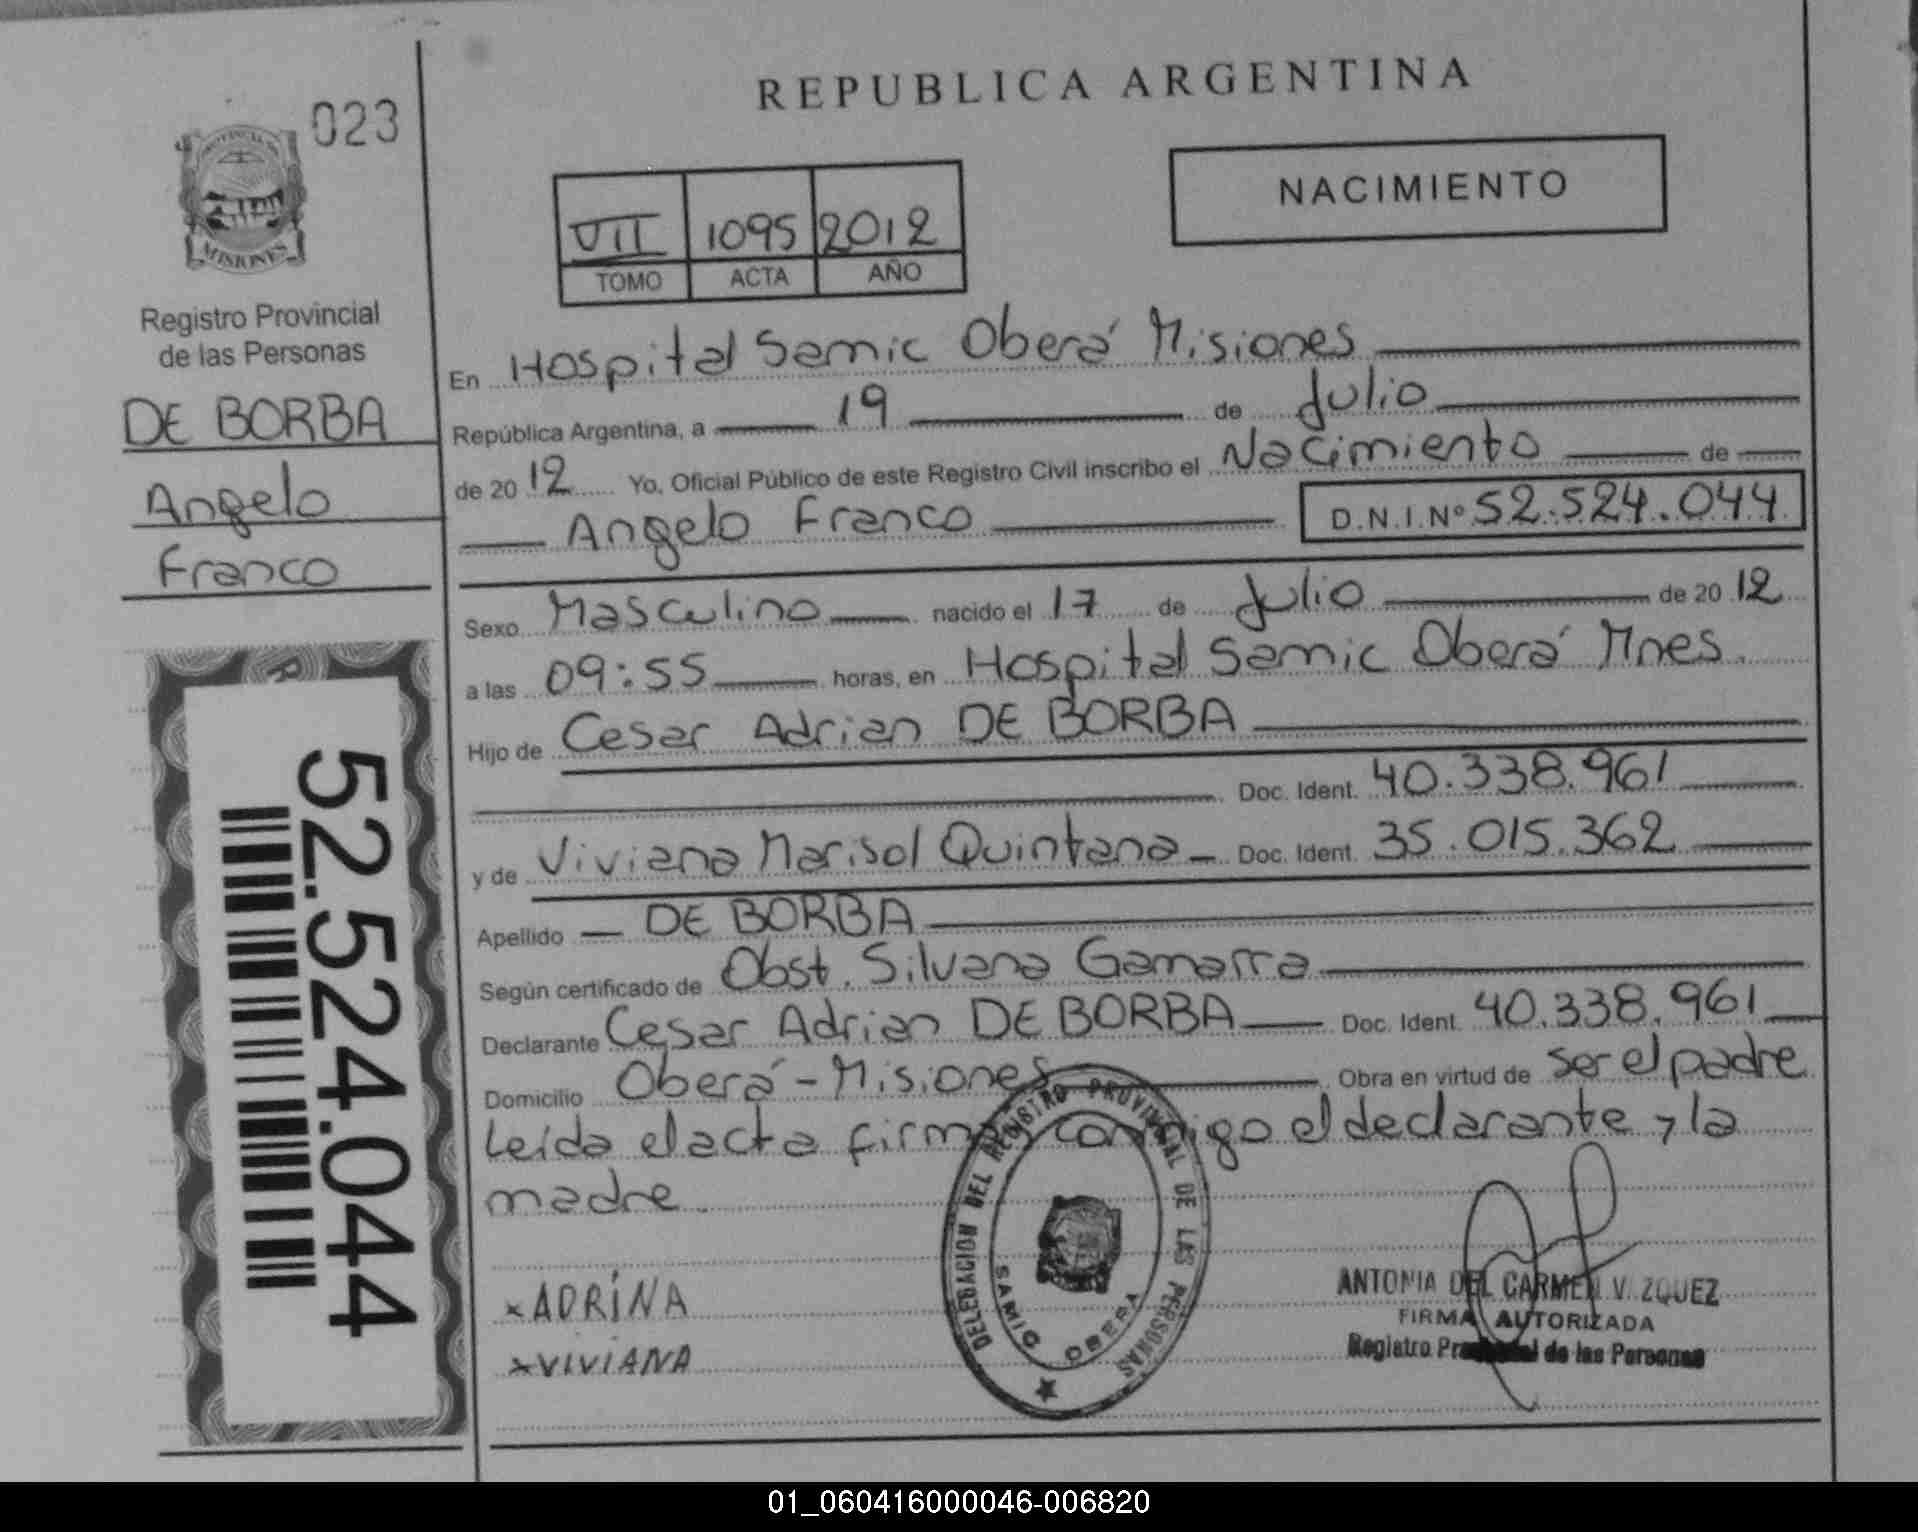 REPUBLICA ARGENTINA
023
PROVINCIA DE
MISIONES
NACIMIENTO
VII 1095 2012
TOMO ACTA AÑO
Registro Provincial
de las Personas
DE BORBA
Angelo
Franco
52.524.044
En Hospital Samic Oberá Misiones
República Argentina, a 19 de Julio
de 2012 Yo, Oficial Público de este Registro Civil inscribo el Nacimiento de
Angelo Franco D.N.I.Nº 52.524.044
Sexo Masculino nacido el 17 de Julio de 2012
a las 09:55 horas, en Hospital Samic Oberá Mnes.
Hijo de Cesar Adrian DE BORBA
Doc. Ident. 40.338.961
y de Viviana Marisol Quintana Doc. Ident. 35.015.362
Apellido DE BORBA
Según certificado de Obst. Silvana Gamarra
Declarante Cesar Adrian DE BORBA Doc. Ident. 40.338.961
Domicilio Oberá - Misiones Obra en virtud de ser el padre
Leída el acta firman conmigo el declarante y la
madre.
DELEGACION DEL REGISTRO PROVINCIAL DE LAS PERSONAS
SAMIC OBERA
x ADRÍNA
x VIVIANA
ANTONIA DEL CARMEN V ZQUEZ
FIRMA AUTORIZADA
Registro Provincial de las Personas
01_060416000046-006820